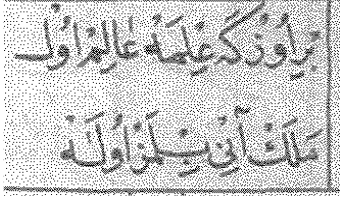 بر اوزكه علمه عالم اول
ملك آنی بیلمز اوله